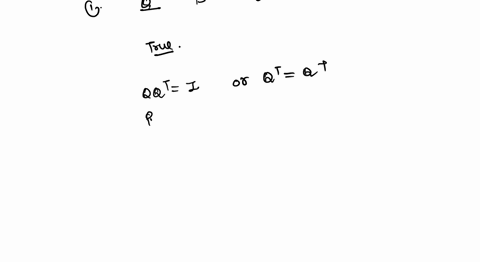 ①. Q
True.
QQᵀ = I or Qᵀ = Qᵀ
P